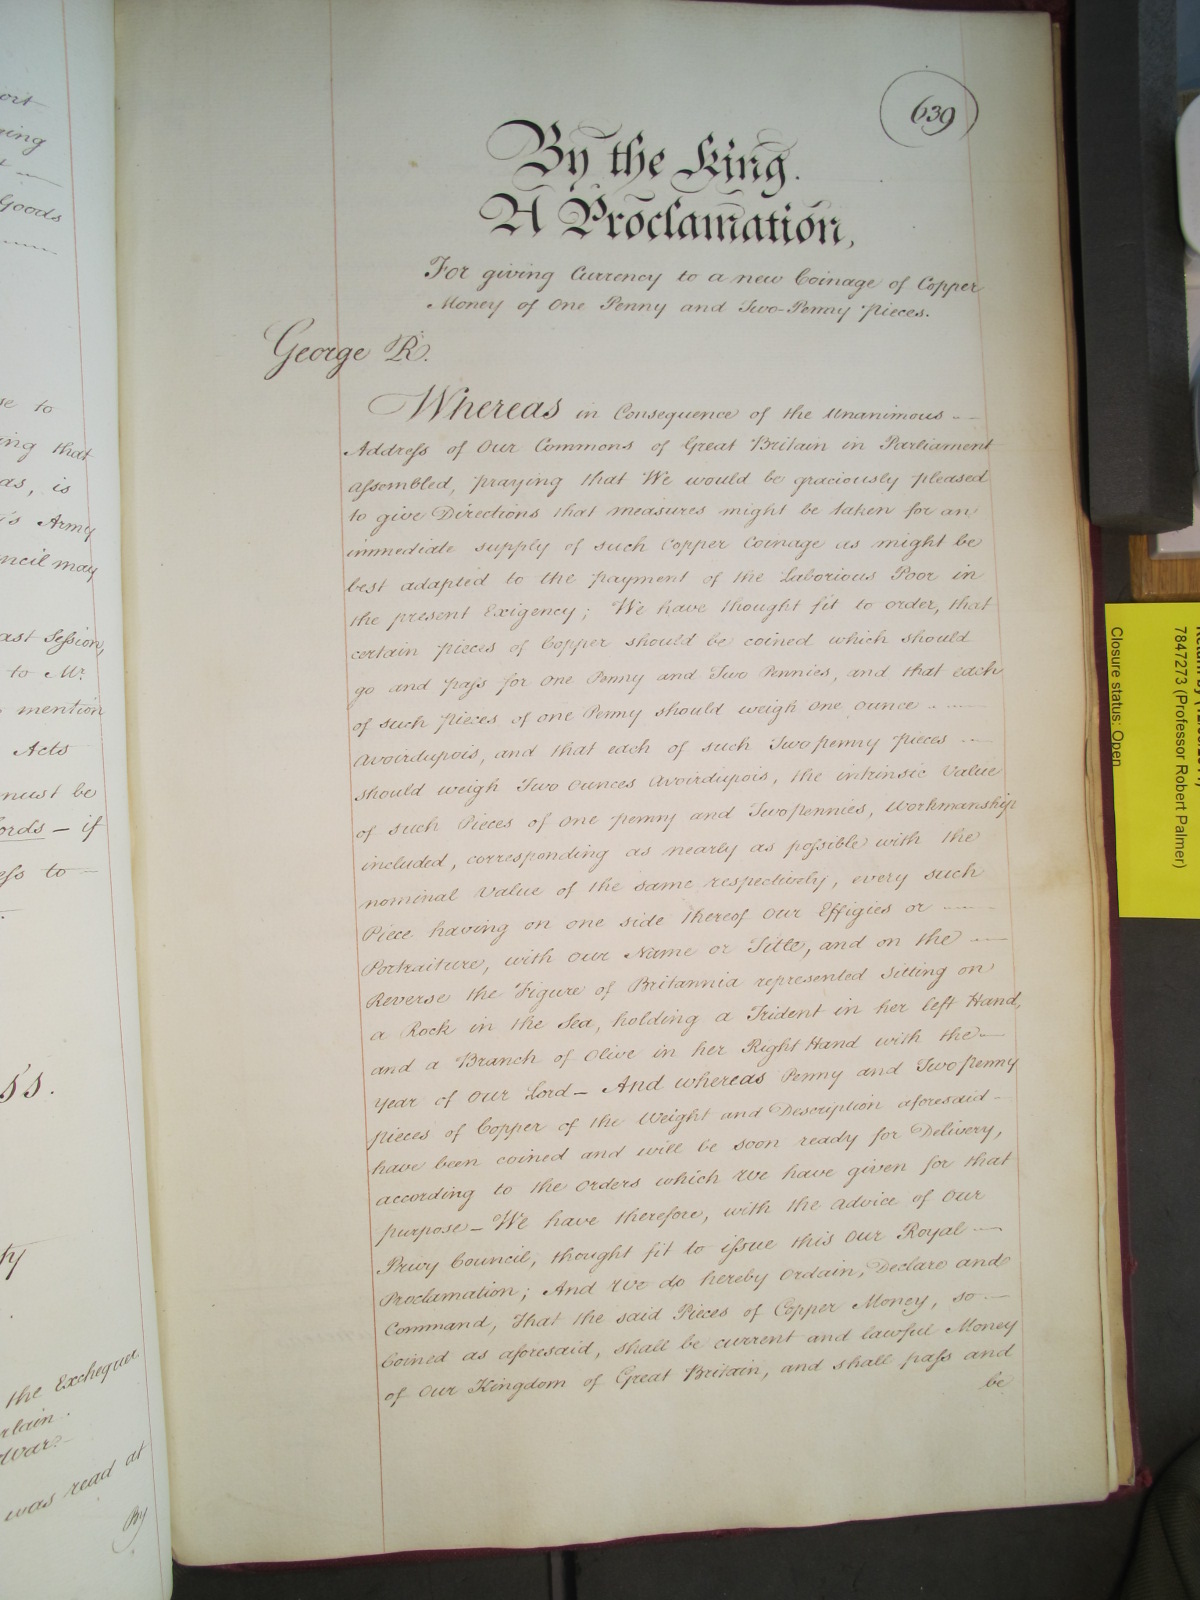 ort
ing
Goods
se to
ing that
as, is
's Army
ncil may
ast Session,
to Mr.
mention
Acts
must be
ords – if
ess to –
55.
ty
the Exchequer
rtain.
War.
was read at
By
639
By the King.
A Proclamation,
For giving Currency to a new Coinage of Copper
Money of One Penny and Two-Penny Pieces.
George R.
Whereas in Consequence of the Unanimous –
Address of Our Commons of Great Britain in Parliament
assembled, praying that We would be graciously pleased
to give Directions that measures might be taken for an
immediate supply of such Copper Coinage as might be
best adapted to the payment of the Laborious Poor in
the present Exigency; We have thought fit to order, that
certain pieces of Copper should be coined which should
go and pass for One Penny and Two Pennies, and that each
of such pieces of one Penny should weigh one ounce –
Avoirdupois, and that each of such Twopenny pieces –
should weigh Two Ounces Avoirdupois, the intrinsic Value
of such Pieces of one penny and Twopennies, Workmanship
included, corresponding as nearly as possible with the
nominal Value of the same respectively, every such
Piece having on one side thereof Our Effigies or –
Portraiture, with our Name or Title, and on the –
Reverse the Figure of Britannia represented sitting on
a Rock in the Sea, holding a Trident in her left Hand,
and a Branch of Olive in her Right Hand with the –
Year of Our Lord – And whereas Penny and Twopenny
pieces of Copper of the Weight and Description aforesaid –
have been coined and will be soon ready for Delivery,
according to the Orders which We have given for that
purpose – We have therefore, with the advice of Our
Privy Council, thought fit to issue this Our Royal –
Proclamation; And We do hereby Ordain, Declare and
Command, That the said Pieces of Copper Money, so –
Coined as aforesaid, shall be current and lawful Money
of Our Kingdom of Great Britain, and shall pass and
be
7847273 (Professor Robert Palmer)
Closure status: Open